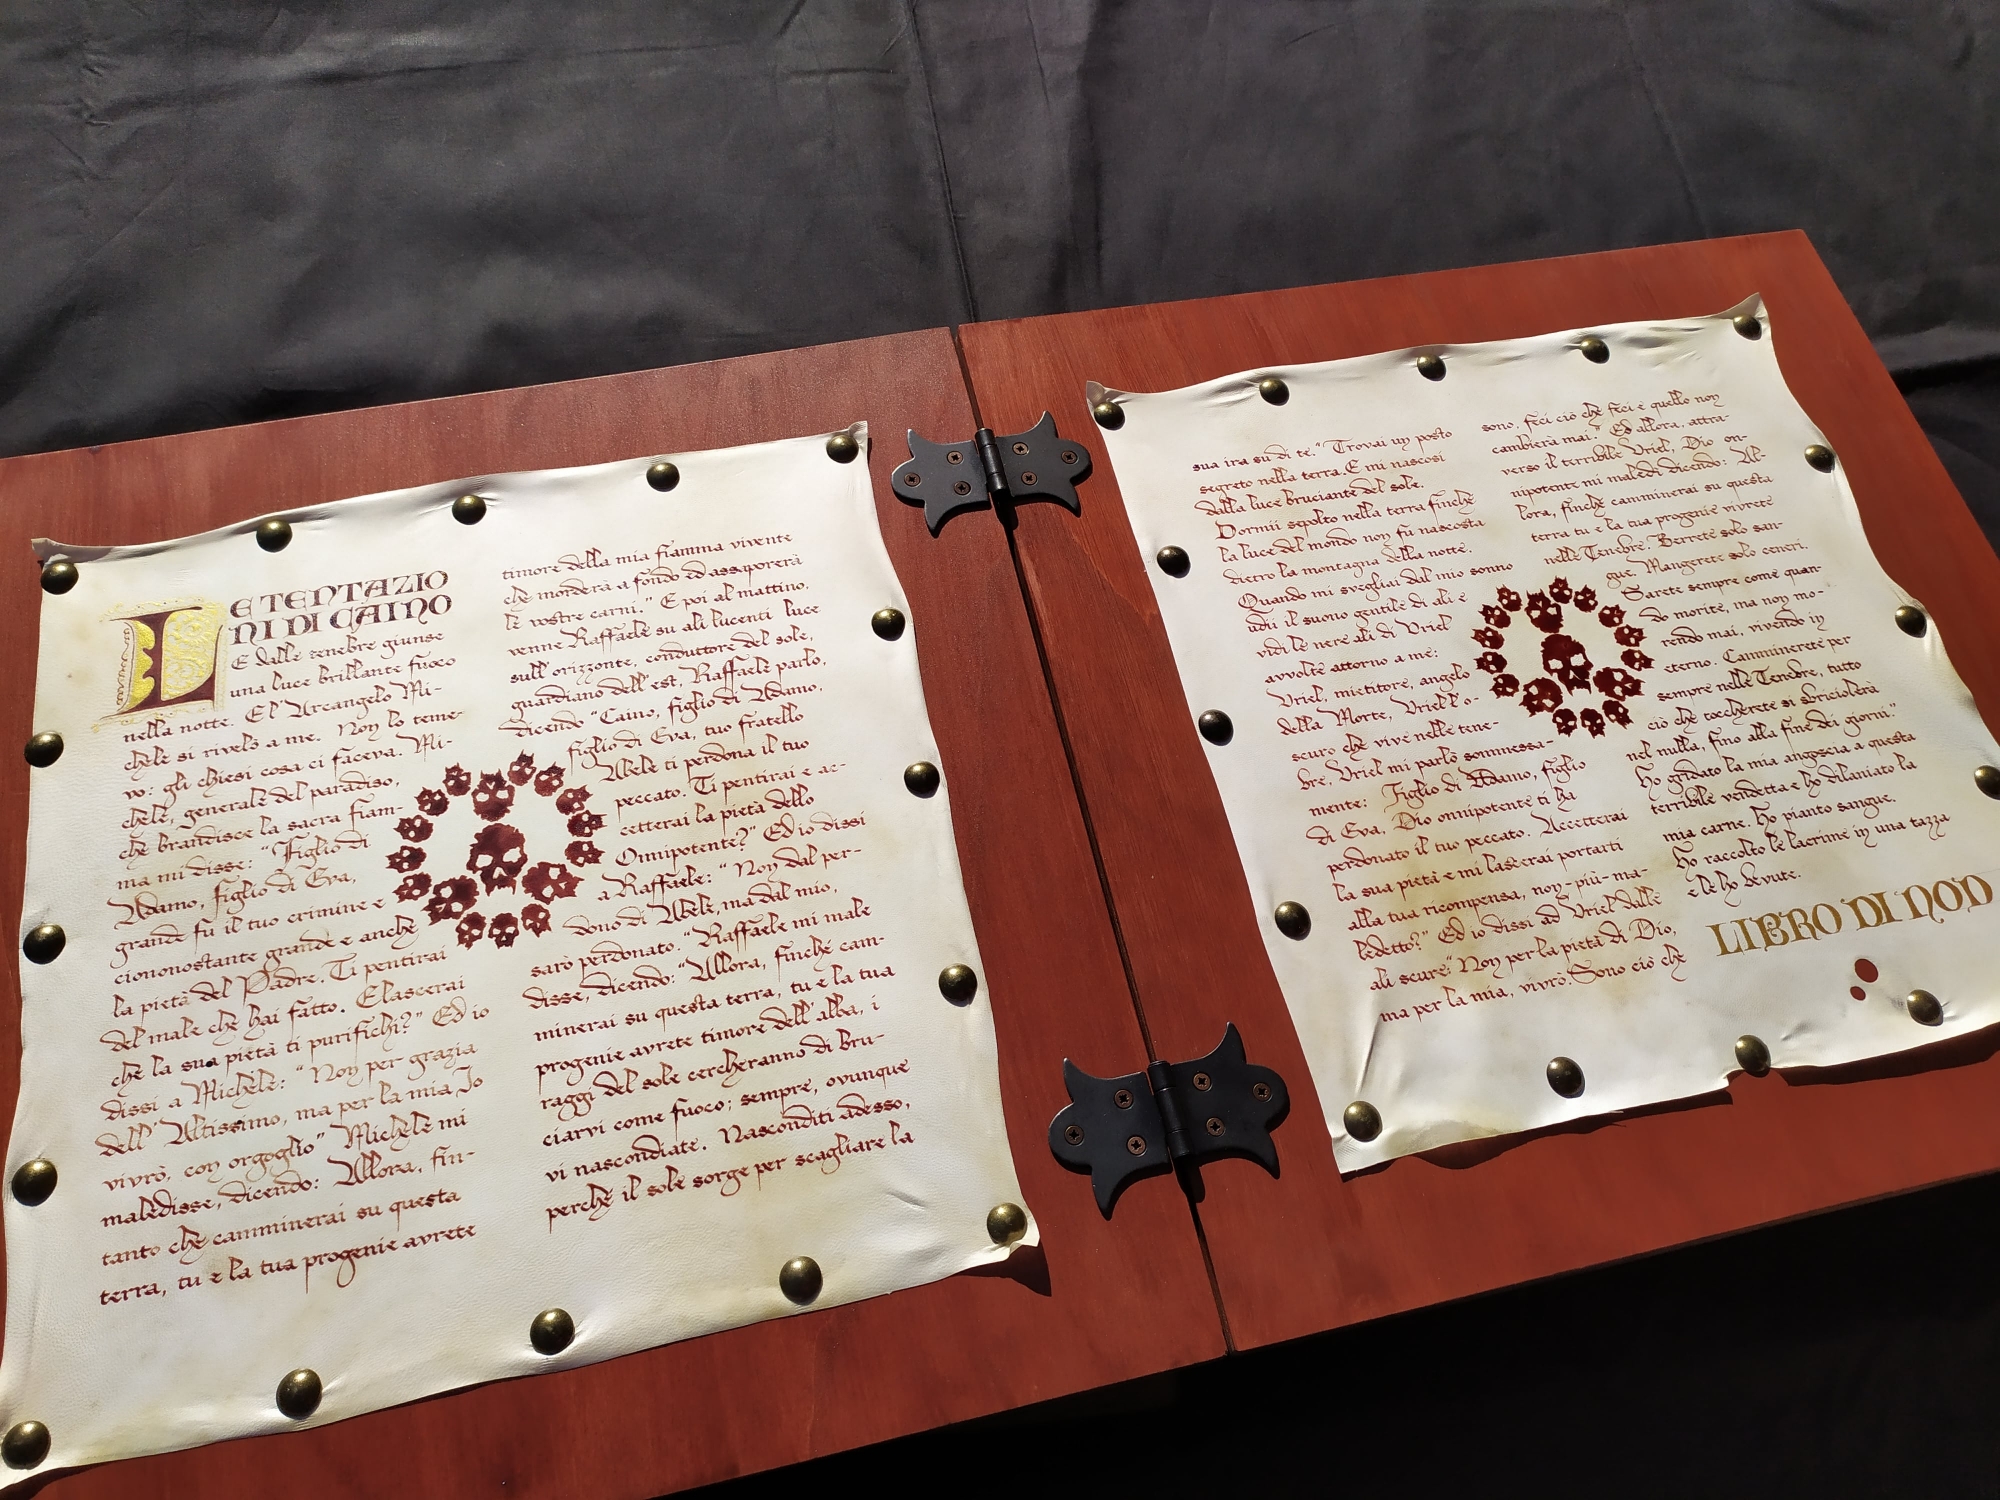 LE TENTAZIO
NI DI CAINO
E dalle tenebre giunse
una luce brillante fuoco
nella notte. E l'Arcangelo Mi-
chele si rivelò a me. Non lo teme-
vo: gli chiesi cosa ci faceva. Mi-
chele, generale del paradiso,
che brandisce la sacra fiam-
ma mi disse: "Figlio di
Adamo, figlio di Eva,
grande fu il tuo crimine e
ciononostante grande e anche
la pietà del Padre. Ti pentirai
del male che hai fatto. E lascerai
che la sua pietà ti purifichi?" Ed io
dissi a Michele: "Non per grazia
dell'Altissimo, ma per la mia Io
vivrò, con orgoglio" Michele mi
maledisse, dicendo: Allora, fin-
tanto che camminerai su questa
terra, tu e la tua progenie avrete
timore della mia fiamma vivente
che morderà a fondo ed assaporerà
le vostre carni." E poi al mattino,
venne Raffaele su ali lucenti luce
sull'orizzonte, conduttore del sole,
guardiano dell'est, Raffaele parlo,
dicendo "Caino, figlio di Adamo,
figlio di Eva, tuo fratello
Abele ti perdona il tuo
peccato. Ti pentirai e ac-
cetterai la pietà dello
Onnipotente?" Ed io dissi
a Raffaele: "Non dal per-
dono di Abele, ma dal mio,
sarò perdonato." Raffaele mi male
disse, dicendo: "Allora, finché cam-
minerai su questa terra, tu e la tua
progenie avrete timore dell'alba, i
raggi del sole cercheranno di bru-
ciarvi come fuoco; sempre, ovunque
vi nascondiate. Nasconditi adesso,
perché il sole sorge per scagliare la
sua ira su di te." Trovai un posto
segreto nella terra. E mi nascosi
dalla luce bruciante del sole.
Dormii sepolto nella terra finché
la luce del mondo non fu nascosta
dietro la montagna della notte.
Quando mi svegliai dal mio sonno
udii il suono gentile di ali e
vidi le nere ali di Uriel
avvolte attorno a me:
Uriel, mietitore, angelo
della Morte, Uriel l'o-
scuro che vive nelle tene-
bre, Uriel mi parlò sommessa-
mente: Figlio di Adamo, figlio
di Eva, Dio onnipotente ti ha
perdonato il tuo peccato. Accetterai
la sua pietà e mi lascerai portarti
alla tua ricompensa, non-più-ma-
ledetto?" Ed io dissi ad Uriel dalle
ali scure: "Non per la pietà di Dio,
ma per la mia, vivrò. Sono ciò che
sono, feci ciò che feci e quello non
cambierà mai." Ed allora, attra-
verso il terribile Uriel, Dio on-
nipotente mi maledì dicendo: Al-
lora, finché camminerai su questa
terra tu e la tua progenie vivrete
nelle Tenebre. Berrete solo san-
gue. Mangerete solo ceneri.
Sarete sempre come quan-
do morite, ma non mo-
rendo mai, vivendo in
eterno. Camminerete per
sempre nelle Tenebre, tutto
ciò che toccherete si sbriciolerà
nel nulla, fino alla fine dei giorni."
Ho gridato la mia angoscia a questa
terribile vendetta e ho dilaniato la
mia carne. Ho pianto sangue.
Ho raccolto le lacrime in una tazza
e le ho bevute.
LIBRO DI NOD